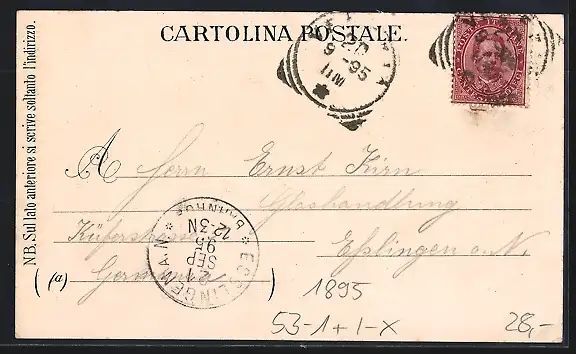 CARTOLINA POSTALE.
NB. Sul lato anteriore si scrive soltanto l'indirizzo.
20
9 -95
11M
A Herrn Ernst Kirn
Glashandlung
Küferstrasse
Esslingen a. N.
(a) Germania
ESSLINGEN A.N.
BAHNHOF
21
SEP
95
12-3N
1895
53-1+1-X
28,-